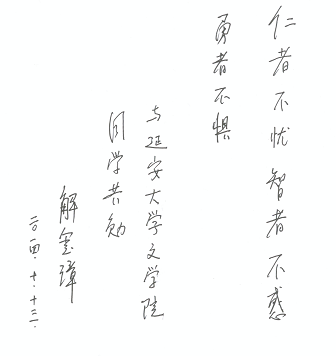 仁者不忧智者不惑
勇者不惧
与延安大学文学院
同学共勉
解玺璋
二〇一四.十.十三.